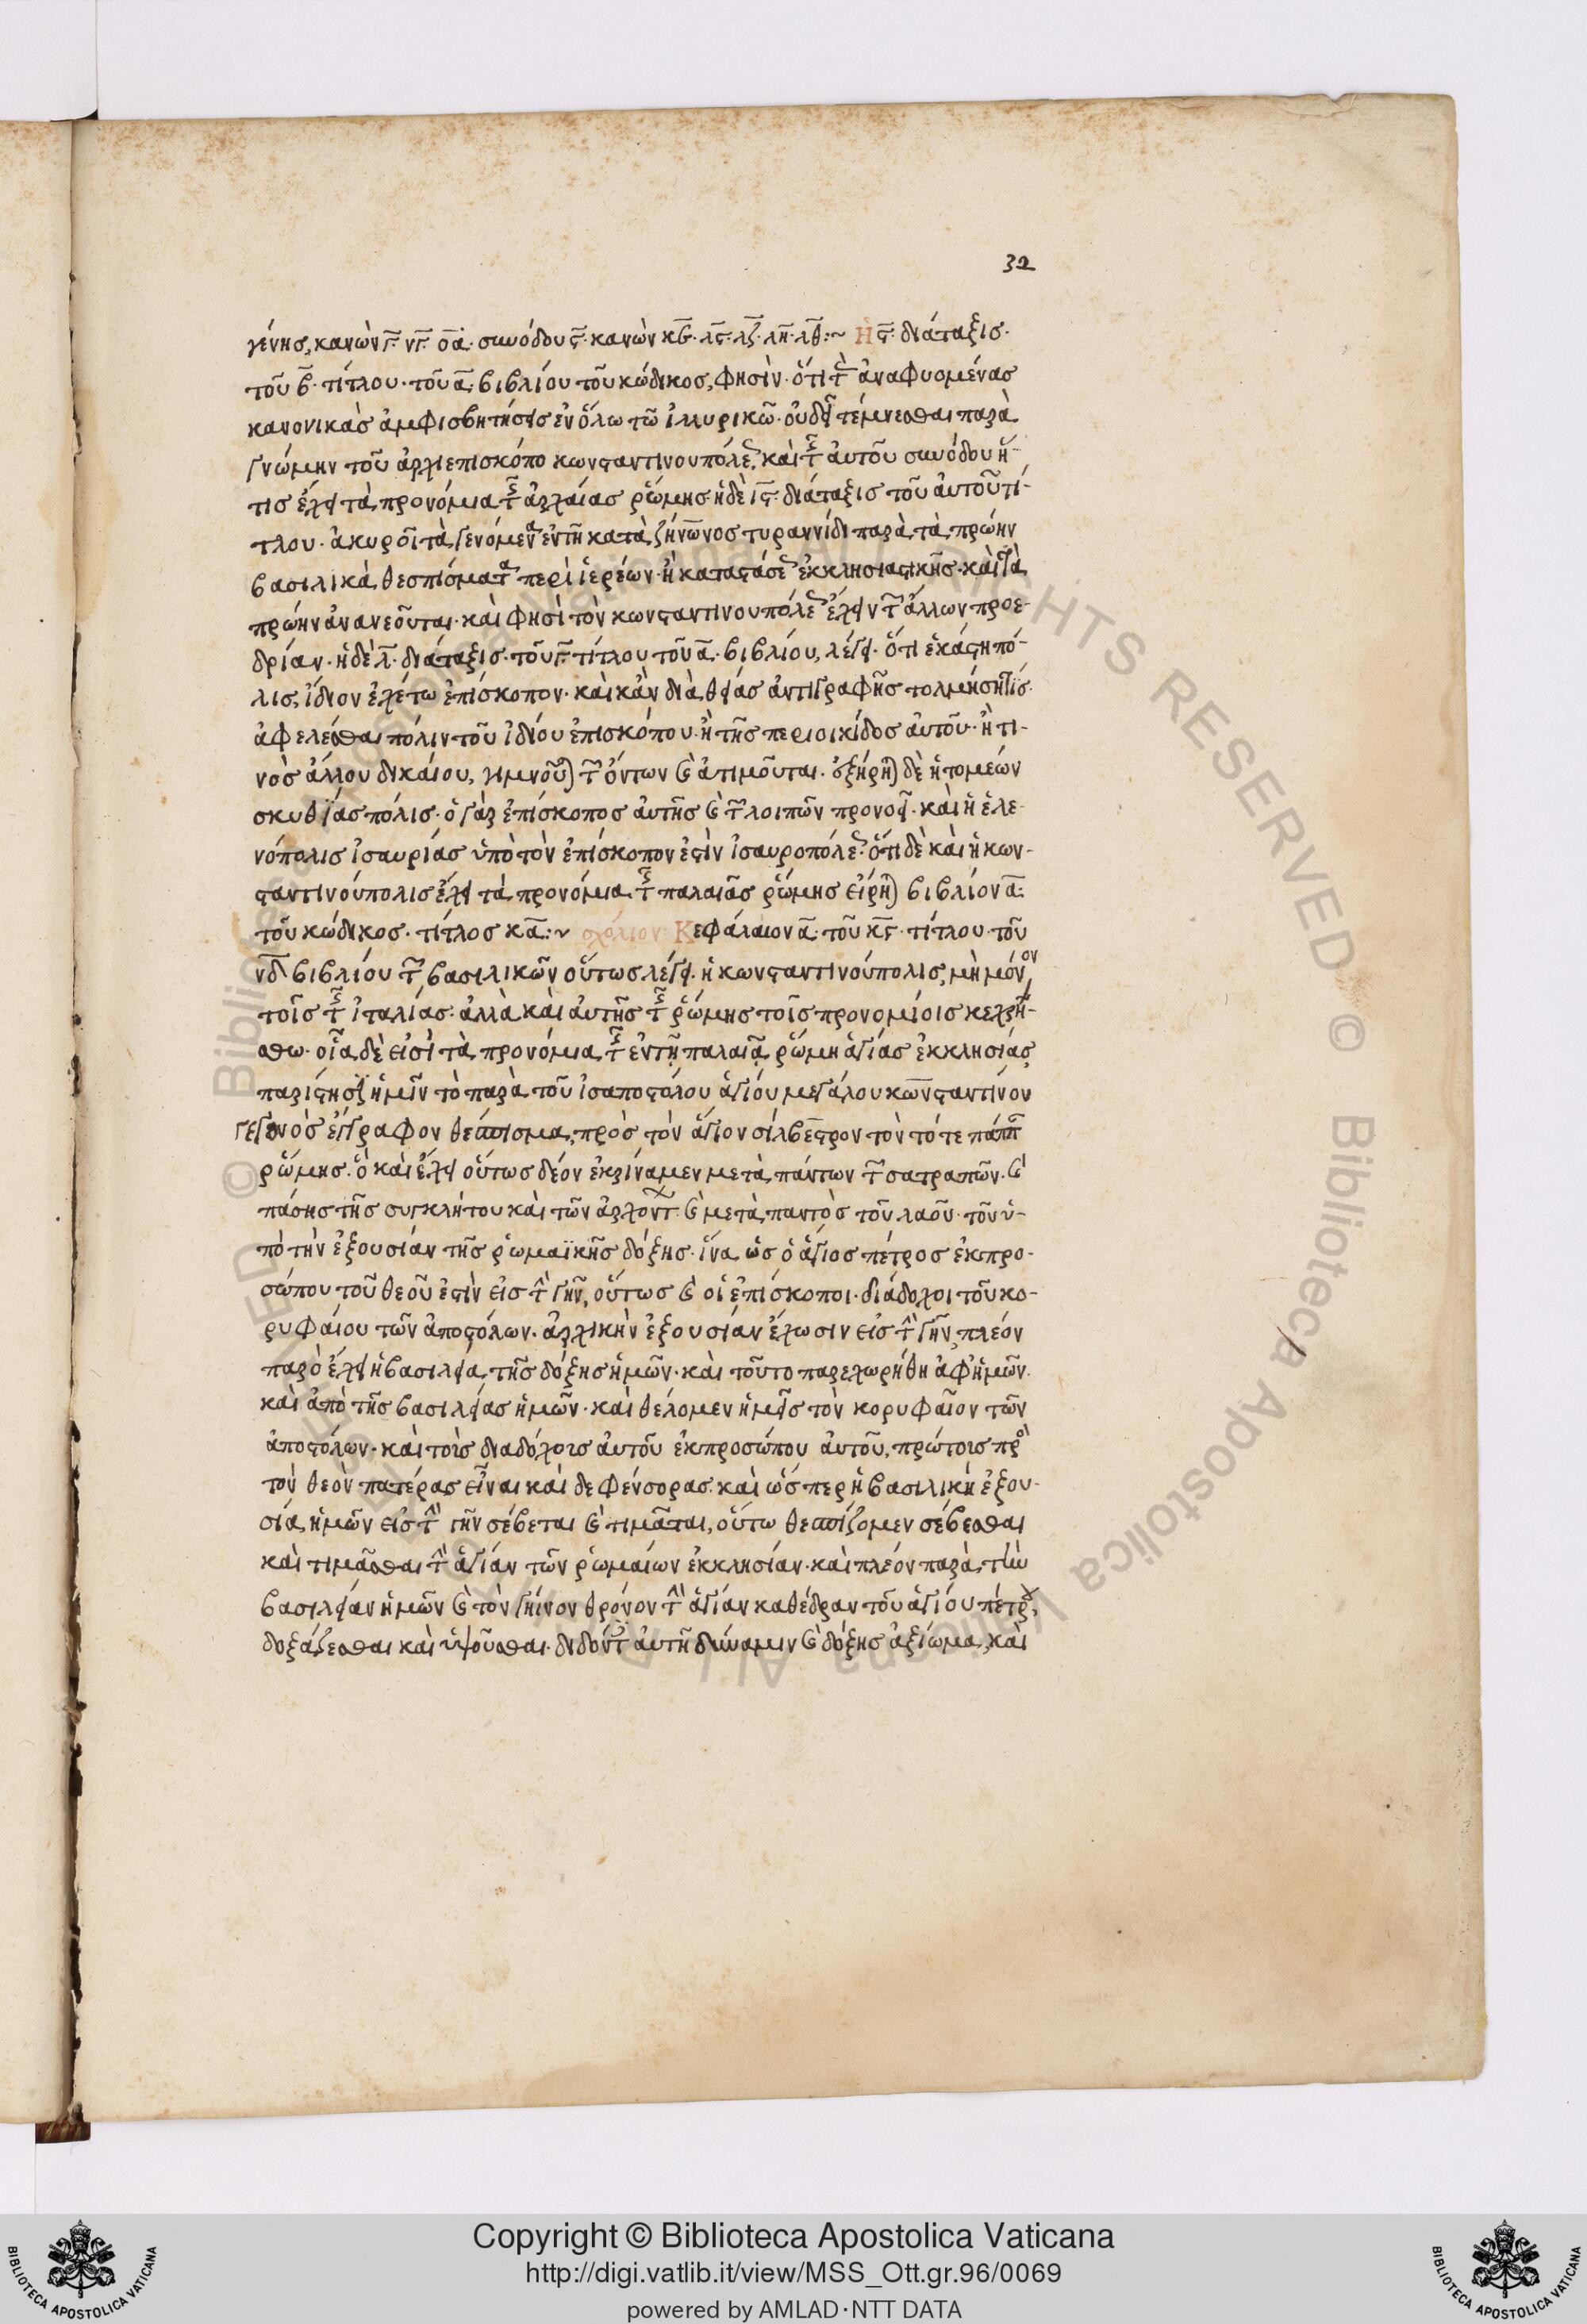 32
γένης, κανὼν γ̅. ν̅γ̅. ο̅α̅. συνόδου ϛ̅. κανὼν κ̅β̅. λ̅ϛ̅. λ̅ζ̅. λ̅η̅. λ̅θ̅:~ Ἡ ϛ̅. διάταξις.
τοῦ β̅. τίτλου. τοῦ α̅. βιβλίου τοῦ κώδικος, φησὶν. ὅτι τὰς ἀναφυομένας
κανονικὰς ἀμφισβητήσεις ἐν ὅλω τῶ ἰλλυρικῶ. οὐ δεῖ τέμνεσθαι παρὰ
γνώμην τοῦ ἀρχιεπισκόπου κωνσταντινουπόλεως, καὶ τῆς αὐτοῦ συνόδου ἥ-
τις ἔχει τὰ προνόμια τῆς ἀρχαίας ῥώμης. ἡ δὲ ι̅ϛ̅. διάταξις τοῦ αὐτοῦ τί-
τλου. ἀκυροῖ τὰ γενόμενα ἐν τῆ κατὰ ζήνωνος τυραννίδι παρὰ τὰ πρώην
βασιλικὰ θεσπίσματα περὶ ἱερέων. ἢ καταστάσεως ἐκκλησιαστικῆς. καὶ τὰ
πρώην ἀνανεοῦται. καὶ φησὶ τὸν κωνσταντινουπόλεως ἔχειν τῶν ἄλλων προε-
δρίαν. ἡ δὲ λ̅. διάταξις. τοῦ γ̅. τίτλου τοῦ α̅. βιβλίου, λέγει. ὅτι ἑκάστη πό-
λις, ἴδιον ἐχέτω ἐπίσκοπον. καὶ κἂν διὰ θείας ἀντιγραφῆς τολμήση τίς.
ἀφελέσθαι πόλιν τοῦ ἰδίου ἐπισκόπου. ἢ τῆς περιοικίδος αὐτοῦ. ἤ τι-
νὸς ἄλλου δικαίου, γυμνοῦται τῶν ὄντων καὶ ἀτιμοῦται. ἐξήρηται δὲ ἡ τομέων
σκυθίας πόλις. ὁ γὰρ ἐπίσκοπος αὐτῆς καὶ τῶν λοιπῶν προνοεῖ. καὶ ἡ ἑλε-
νόπολις ἰσαυρίας ὑπὸ τὸν ἐπίσκοπον ἐστὶν ἰσαυροπόλεως. ὅτι δὲ καὶ ἡ κων-
σταντινούπολις ἔχει τὰ προνόμια τῆς παλαιᾶς ῥώμης εἴρηται βιβλίον α̅.
τοῦ κώδικος. τίτλος κ̅α̅:~ σχόλιον Κεφάλαιον α̅. τοῦ κ̅γ̅. τίτλου. τοῦ
ν̅δ̅ βιβλίου τῶν βασιλικῶν οὕτως λέγει. ἡ κωνσταντινούπολις, μὴ μόνον
τοῖς τῆς ἰταλίας. ἀλλὰ καὶ αὐτῆς τῆς ῥώμης τοῖς προνομίοις κεχρή-
σθω. οἷα δὲ εἰσὶ τὰ προνόμια τῆς ἐν τῇ παλαιᾷ ῥώμη ἁγίας ἐκκλησίας
παρίστησιν ἡμῖν τὸ παρὰ τοῦ ἰσαποστόλου ἁγίου μεγάλου κωνσταντίνου
γεγονὸς ἔγγραφον θέσπισμα, πρὸς τὸν ἅγιον σίλβεστρον τὸν τότε πάπαν
ῥώμης. ὃ καὶ ἔχει οὕτως δέον ἐκρίναμεν μετὰ πάντων τῶν σατραπῶν. καὶ
πάσης τῆς συγκλήτου καὶ τῶν ἀρχόντων καὶ μετὰ παντὸς τοῦ λαοῦ. τοῦ ὑ-
πὸ τὴν ἐξουσίαν τῆς ῥωμαϊκῆς δόξης. ἵνα ὡς ὁ ἅγιος πέτρος ἐκ προ-
σώπου τοῦ θεοῦ ἐστὶν εἰς τὴν γῆν, οὕτως καὶ οἱ ἐπίσκοποι. διάδοχοι τοῦ κο-
ρυφαίου τῶν ἀποστόλων. ἀρχικὴν ἐξουσίαν ἔχωσιν εἰς τὴν γῆν, πλέον
παρὸ ἔχει ἡ βασιλεία τῆς δόξης ἡμῶν. καὶ τοῦτο παρεχωρήθη ἀφ' ἡμῶν.
καὶ ἀπὸ τῆς βασιλείας ἡμῶν. καὶ θέλομεν ἡμεῖς τὸν κορυφαῖον τῶν
ἀποστόλων. καὶ τοὶς διαδόχοις αὐτοῦ ἐκπροσώπου αὐτοῦ, πρώτοις πρὸς
τὸν θεὸν πατέρας εἶναι καὶ δεφένσορας. καὶ ὥσπερ ἡ βασιλικὴ ἐξου-
σία ἡμῶν εἰς τὴν γῆν σέβεται καὶ τιμᾶται, οὕτω θεσπίζομεν σέβεσθαι
καὶ τιμᾶσθαι τὴν ἁγίαν τῶν ῥωμαίων ἐκκλησίαν. καὶ πλέον παρὰ τὴν
βασιλείαν ἡμῶν καὶ τὸν γήινον θρόνον τὴν ἁγίαν καθέδραν τοῦ ἁγίου πέτρου,
δοξάζεσθαι καὶ ὑψοῦσθαι. διδόντες αὐτῆ δύναμιν καὶ δόξης ἀξίωμα, καὶ
Copyright © Biblioteca Apostolica Vaticana
http://digi.vatlib.it/view/MSS_Ott.gr.96/0069
powered by AMLAD·NTT DATA